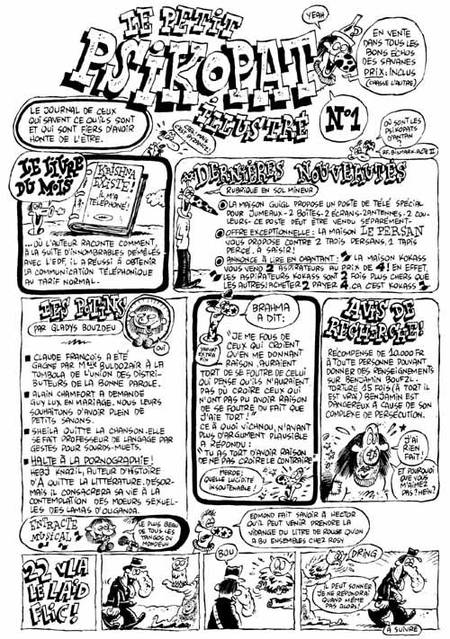 LE PETIT
PSIKOPAT
ILLUSTRÉ
N°1
YEAH
EN VENTE
DANS TOUS LES
BONS ECHOS
DES SAVANES
PRIX: INCLUS
(CHASSE L'AUTRE)
LE JOURNAL DE CEUX
QUI SAVENT CE QU'ILS SONT
ET QUI SONT FIERS D'AVOIR
HONTE DE L'ETRE.
OÙ SONT LES
PSIKOPATS
D'ANTAN
LE LIVRE
DU MOIS
KRISHNA
EXISTE!
IL M'A
TÉLÉPHONÉ!
...OÙ L'AUTEUR RACONTE COMMENT,
À LA SUITE D'INNOMBRABLES DÉMÊLÉS
AVEC L'EDF, IL A RÉUSSI À OBTENIR
LA COMMUNICATION TÉLÉPHONIQUE
AU TARIF NORMAL.
DERNIÈRES NOUVEAUTÉS
RUBRIQUE EN SOL MINEUR
LA MAISON GUIGL PROPOSE UN POSTE DE TÉLÉ SPÉCIAL
POUR JUMEAUX - 2 BOITES, 2 ÉCRANS, 2 ANTENNES, 2 COU-
LEURS - CE POSTE PEUT ÊTRE VENDU SÉPARÉMENT-
OFFRE EXCEPTIONNELLE: LA MAISON LE PERSAN
VOUS PROPOSE CONTRE 2 TAPIS PERSANS, 1 TAPIS
PERCÉ, À SAISIR!
ANNONCE À LIRE EN CHANTANT: LA MAISON KOKASS
VOUS VEND 2 ASPIRATEURS AU PRIX DE 4! EN EFFET,
LES ASPIRATEURS KOKASS SONT 2 FOIS PLUS CHERS QUE
LES AUTRES! ACHETER 2 PAYER 4, ÇA C'EST KOKASS
LES POTINS
PAR GLADYS BOUZDEU
CLAUDE FRANÇOIS A ÉTÉ
GAGNÉ PAR MELLE BULDOZAIR À LA
TOMBOLA DE L'UNION DES DISTRI-
BUTEURS DE LA BONNE PAROLE.
ALAIN CHAMFORT A DEMANDÉ
GUY LUX EN MARIAGE. NOUS LEURS
SOUHAITONS D'AVOIR PLEIN DE
PETITS SANONS.
SHEILA QUITTE LA CHANSON. ELLE
SE FAIT PROFESSEUR DE LANGAGE PAR
GESTES POUR SOURDS-MUETS.
HALTE À LA PORNOGRAPHIE!
HEBJ KNARZIL, AUTEUR D'HISTOIRE
D'A QUITTÉ LA LITTÉRATURE. DÉSOR-
MAIS IL CONSACRERA SA VIE À LA
CONTEMPLATION DES MOEURS SEXUEL-
LES DES LAMAS D'OUGANDA.
BRAHMA
A DIT:
"JE ME FOUS DE
CEUX QUI CROIENT
QU'EN ME DONNANT
RAISON J'AURAIENT
TORT DE SE FOUTRE DE CELUI
QUI PENSE QU'ILS N'AURAIENT
PAS DÛ CROIRE CEUX QUI
N'ONT PAS PU AVOIR RAISON
DE SE FOUTRE DU FAIT QUE
J'AIE TORT!"
CE À QUOI VICHNOU, N'AYANT
PLUS D'ARGUMENT PLAUSIBLE
A RÉPONDU:
"TU AS TORT D'AVOIR RAISON
DE NE PAS CROIRE LE CONTRAIRE"
MERDE,
QUELLE LUCIDITÉ
INSOUTENABLE!
AVIS DE
RECHERCHE!
RÉCOMPENSE DE 10.000 FR
À TOUTE PERSONNE POUVANT
DONNER DES RENSEIGNEMENTS
SUR BENJAMIN BOUFZL.
TORTURÉ 15 FOIS (À TORT IL
EST VRAI) BENJAMIN EST
DANGEREUX À CAUSE DE SON
COMPLEXE DE PERSÉCUTION.
J'AI
RIEN
FAIT!
ET POURQUOI
QUE VOUS
PAS? HEIN?
ENTRACTE
MUSICAL
LE PLUS BEAU
DE TOUS LES
TANGOS DU
MONDEUU
EDMOND FAIT SAVOIR À HECTOR
QU'IL PEUT VENIR PRENDRE LA
VIDANGE DU LITRE DE ROUGE QU'ON
A BU ENSEMBLES CHEZ ROSY
22 VLA
LE LAID
FLIC!
BOU
DRING
IL PEUT SONNER
JE NE RÉPONDRAI
QUAND MÊME
PAS ALORS!
À SUIVRE